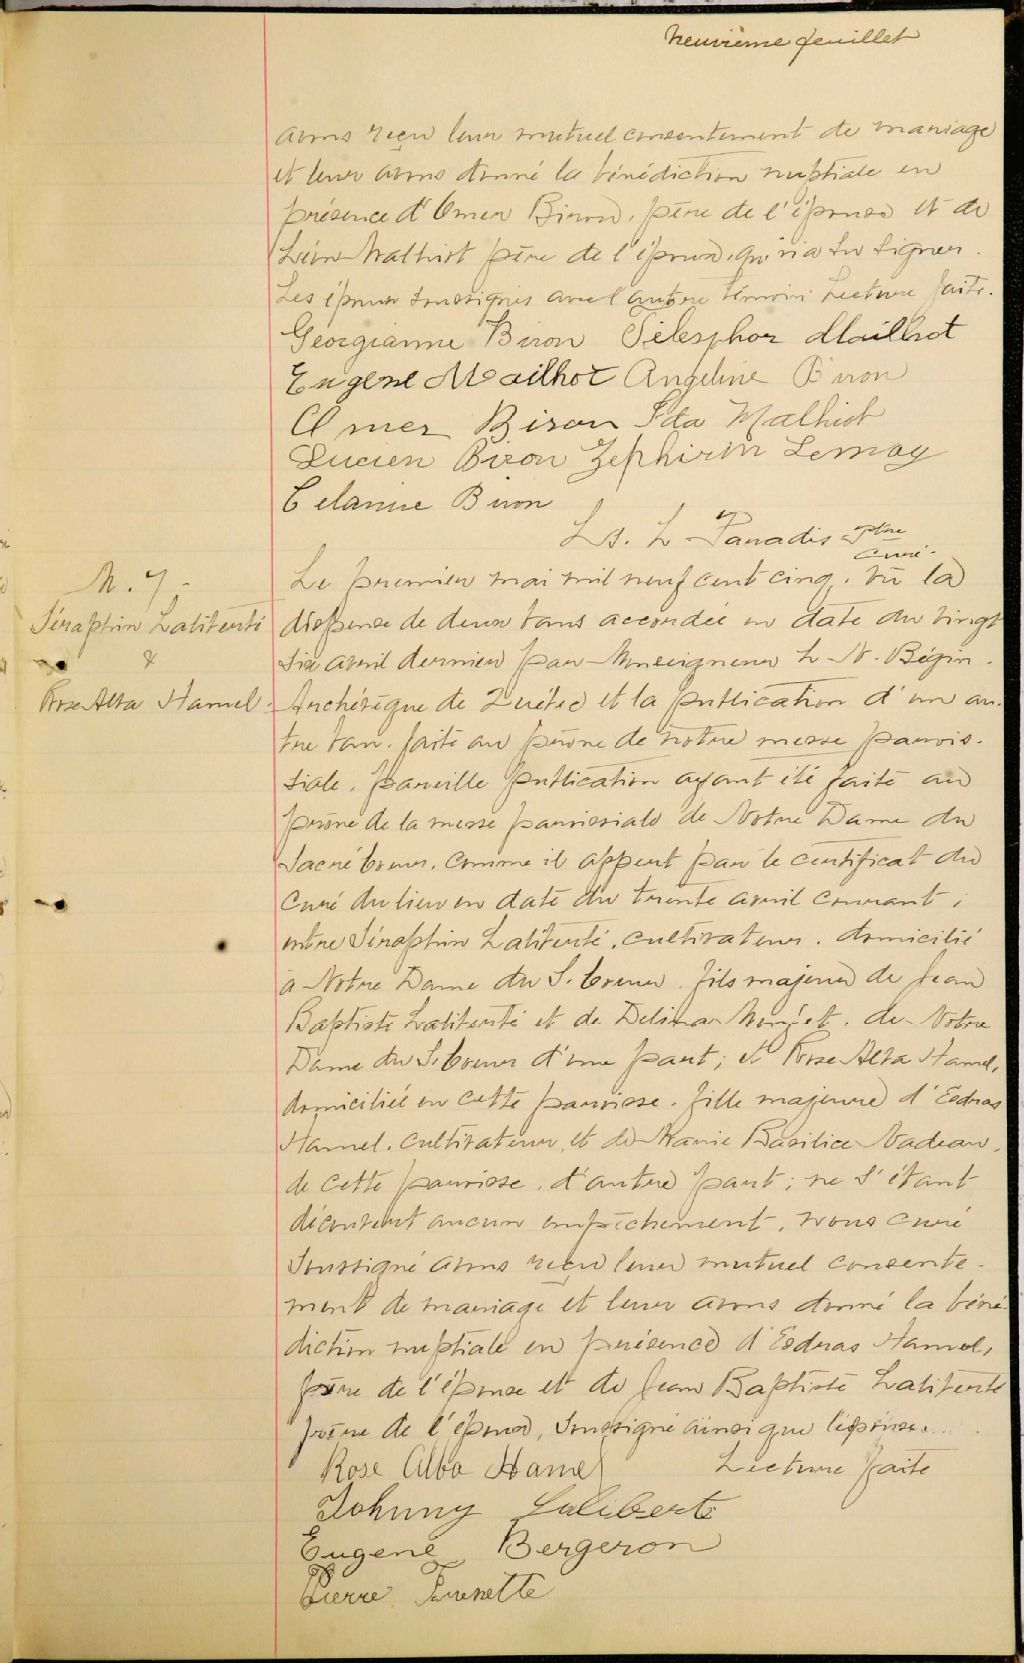 Neuvième feuillet
avons reçu leur mutuel consentement de mariage
et leur avons donné la bénédiction nuptiale en
présence d'Omer Biron, père de l'épouse et de
Léon Malhiot père de l'époux, qui n'a su signer.
Les époux soussignés avec l'autre témoin. Lecture faite.
Georgianne Biron Télesphor Mailhot
Eugene Mailhot Angeline Biron
Omer Biron Ida Malhiot
Lucien Biron Zephirin Lemay
Celanire Biron
Ls. L. Paradis Ptre
Curé.
M. 7
Séraphin Laliberté
&
Rose Alba Hamel.
Le premier mai mil neuf cent cinq, vu la
dispense de deux bans accordée en date du vingt
six avril dernier par Monseigneur L. N. Bégin.
Archévêque de Québec et la publication d'un au-
tre ban, faite au prône de notre messe parois-
siale, pareille publication ayant été faite au
prône de la messe paroissiale de Notre Dame du
Sacré Coeur, comme il appert par le certificat du
curé du lieu en date du trente avril courant;
entre Séraphin Laliberté, cultivateur, domicilié
à Notre Dame du S. Coeur, fils majeur de Jean
Baptiste Laliberté et de Delima, de Notre
Dame du S. Coeur d'une part; et Rose Alba Hamel,
domiciliée en cette paroisse, fille majeure d'Esdras
Hamel, cultivateur, et de Marie Basilice Nadeau,
de cette paroisse, d'autre part; ne s'étant
découvert aucun empêchement, nous curé
soussigné avons reçu leur mutuel consente-
ment de mariage et leur avons donné la béné-
diction nuptiale en présence d'Esdras Hamel,
père de l'épouse et de Jean Baptiste Laliberté
père de l'époux, soussigné ainsi que l'épouse.
Rose Alba Hamel Lecture faite
Johnny Laliberte
Eugene Bergeron
Pierre